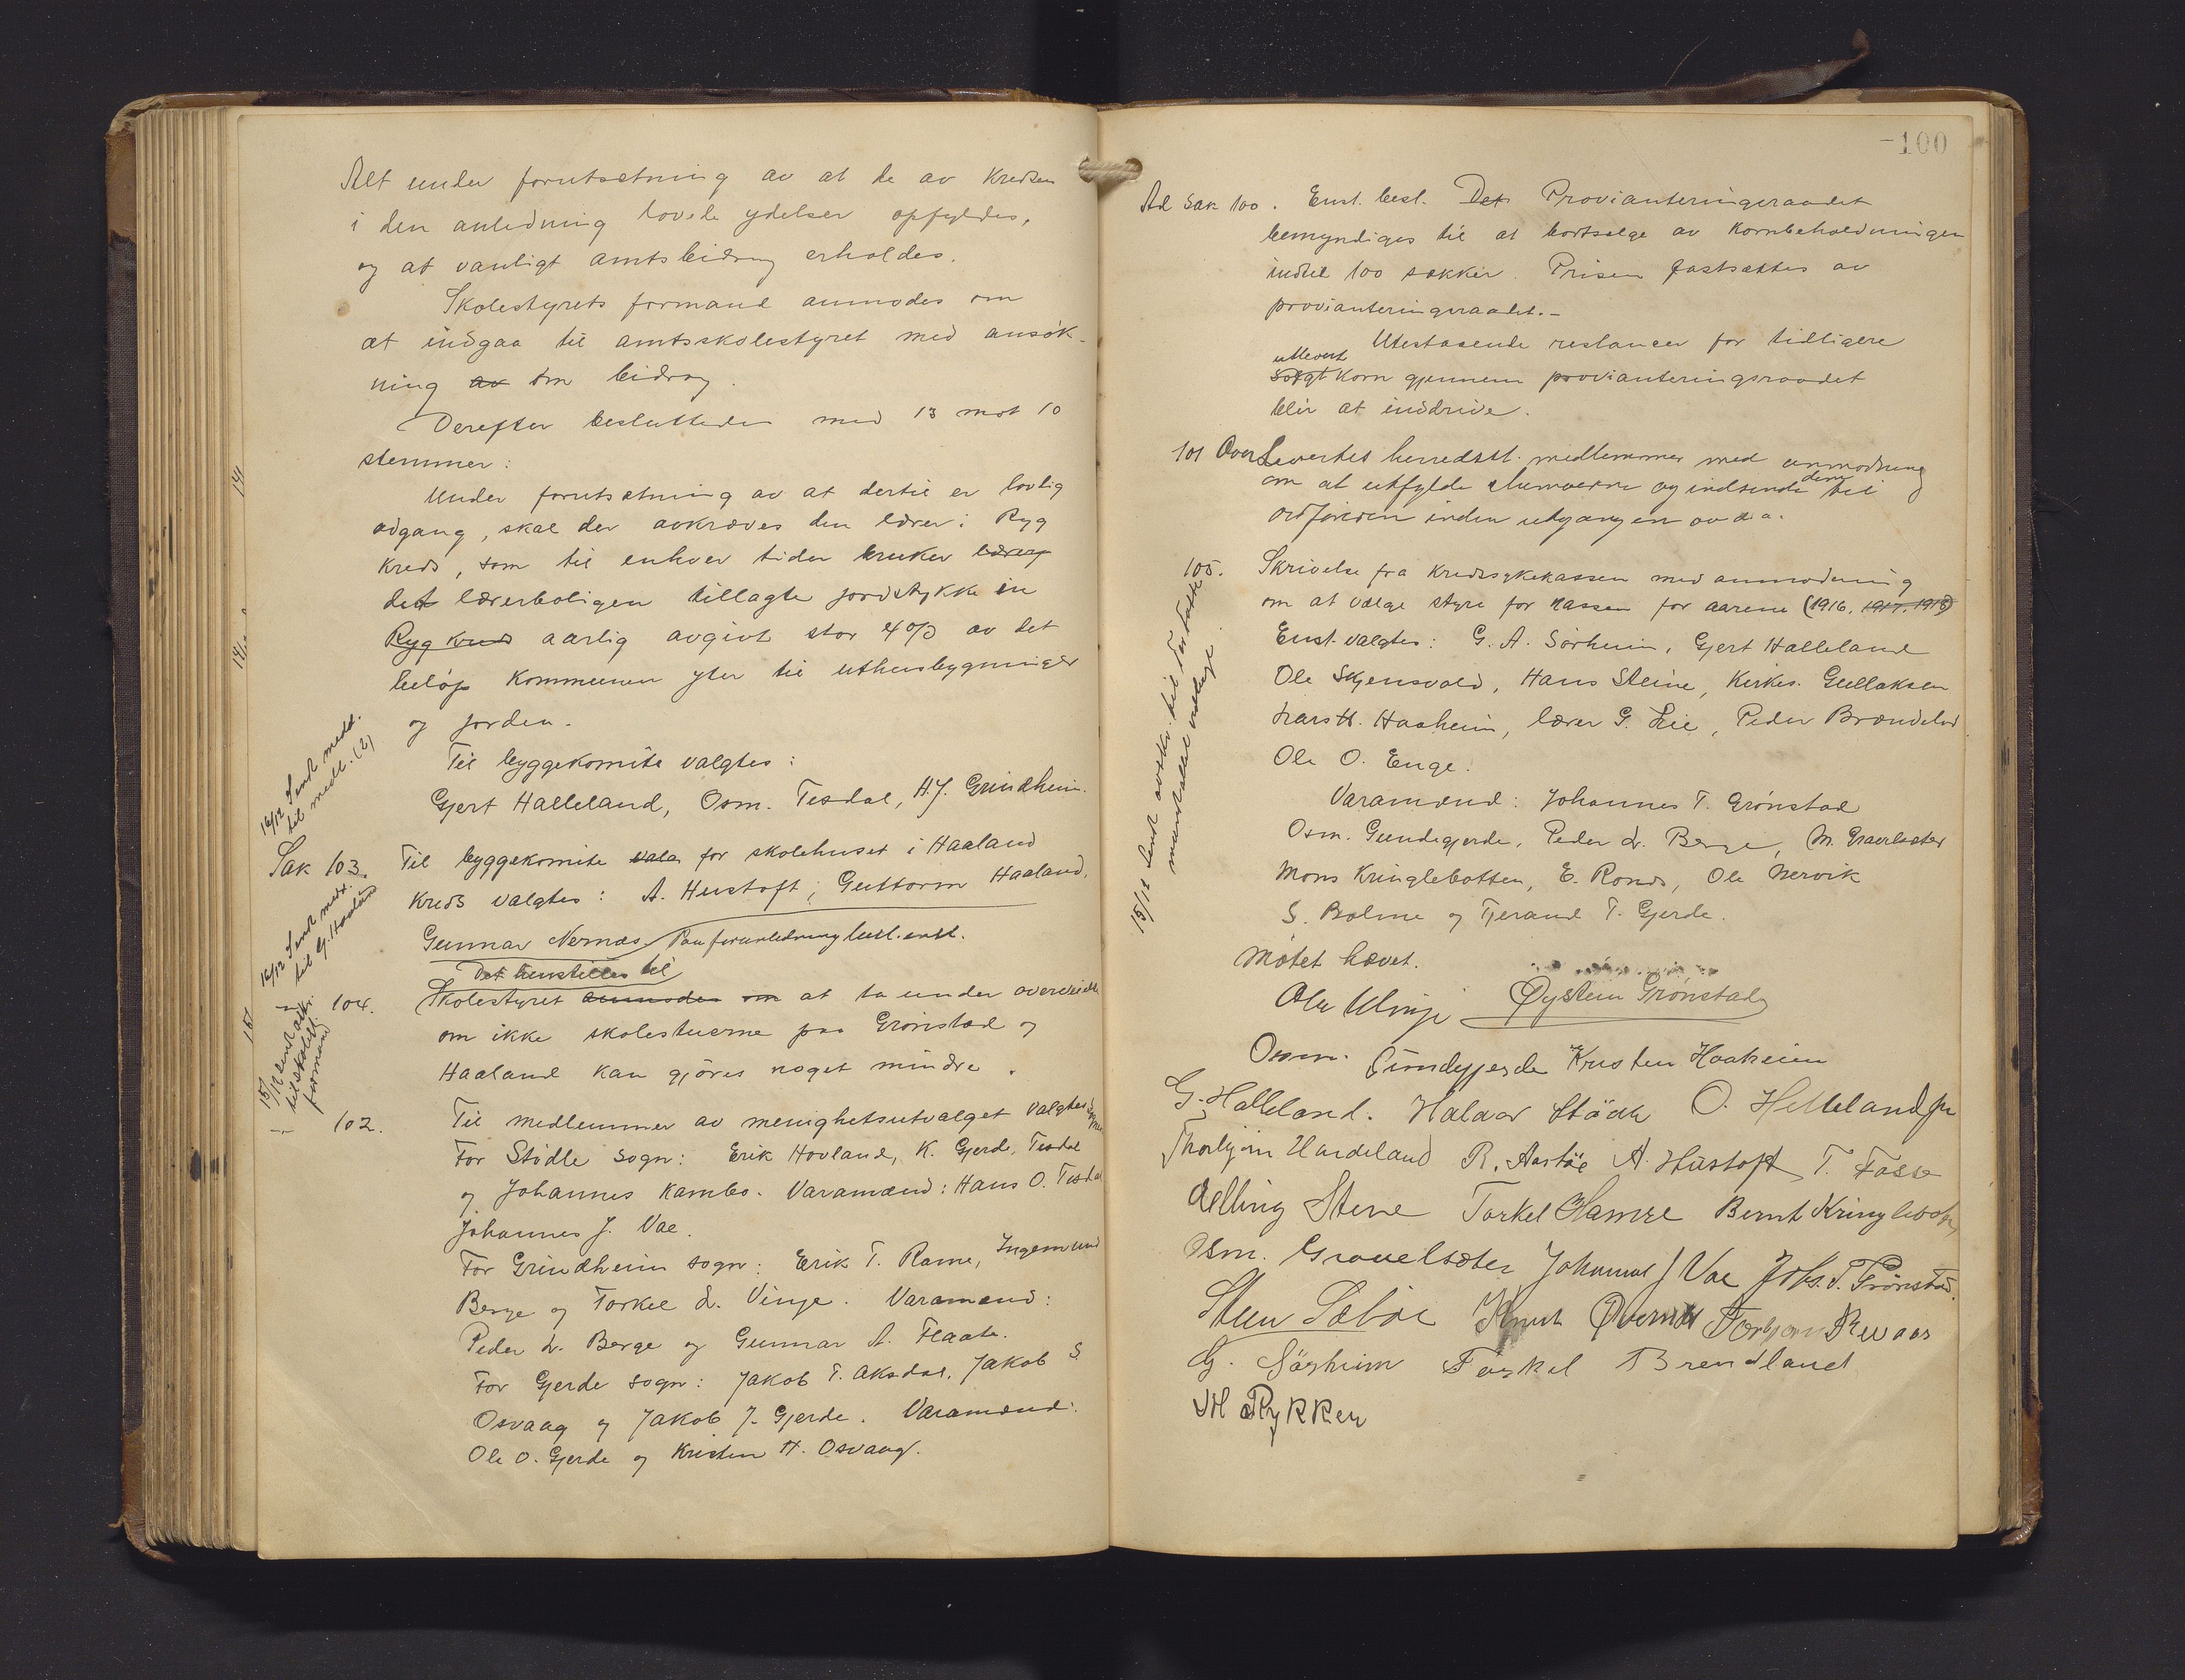 Alt under forutsætning av at de av Kredsen
i den anledning lovede ydelser opfyldes,
og at vanligt amtsbidrag erholdes.
Skolestyrets formand anmodes om
at indgaa til amtsskolestyret med ansøk-
ning av om bidrag.
Derefter besluttedes med 13 mot 10
stemmer:
Under forutsætning av at dertil er lovlig
adgang, skal der avkræves den lærer i Ryg
Kreds, som til enhver tider bruker
det lærerboligen tillagte jordstykke en
Ryg Kreds aarlig avgivt stor 4 % av det
beløp Kommunen yter til uthusbygninger
og jorden.
Til byggekomite valgtes:
Gjert Halleland, Osm. Tesdal, H.J. Grindheim.
16/12 Sendt medd.
til medl. (2)
Sak 103. Til byggekomite valg for skolehuset i Haaland
Kreds valgtes: A. Hustoft, Guttorm Haaland,
Gunnar Nernæs. Paa foranledning besl. enst.
16/12 Sendt medd.
til G. Haaland
Det henstilles til
" 104. Skolestyret anmodes om at ta under overveielse
om ikke skolestuerne paa Grönstad og
Haaland kan gjöres noget mindre.
15/12 sendt avskr.
til skolest.
formand
" 102. Til medlemmer av menighetsutvalget valgtes
For Stödle sogn: Erik Hovland, K. Gjerde, Tesdal
og Johannes Kambo. Varamænd: Hans O. Tesdal
Johannes J. Vae.
For Grindheim sogn: Erik T. Rame, Ingemund
Berge og Torkel L. Vinje. Varamænd:
Peder L. Berge og Gunnar A. Flaate.
For Gjerde sogn: Jakob T. Aksdal, Jakob S.
Osvaag og Jakob J. Gjerde. Varamænd:
Ole O. Gjerde og Kristen H. Osvaag.
100
Ad Sak 100. Enst. besl. Det Provianteringsraadet
bemyndiges til at bortselge av Kornbeholdningen
indtil 100 sækker. Prisen fastsættes av
provianteringsraadet.-
Utestaaende restancer for tidligere
utlevert
solgt Korn gjennem provianteringsraadet
blir at inddrive.
101 Overlevertes herredsst. medlemmer med anmodning
om at utfylde skemaerne og indsende dem til
ordføreren inden utgangen av d.a.
105. Skrivelse fra Kredssykekassen med anmodning
om at vælge styre for kassen for aarene (1916, 1917, 1918)
Enst. valgtes: G. A. Sörheim, Gjert Halleland
Ole Skjensvold, Hans Steine, Kirkes. Gullaksen
Lars H. Haaheim, lærer G. Lie, Peder Brændeland
Ole O. Enge.
15/12 Sendt avskr. til
Varamænd: Johannes T. Grönstad
Osm. Gundegjerde, Peder L. Berge, M. Gravelsæter
Mons Kringlebotten, E. Ronds, Ole Nervik
S. Bolme og Tjerand T. Gjerde.
Møtet hævet.
Ole Vinje Øystein Grønstad
Osm. Gundegjerde Kristen Haaheim
G. Halleland. Haldor Stödle O. Helleland jr
Thorbjørn Hardeland R. Aartöe A. Hustoft T. Fosse
Elling Stene Torkel Hamre Bernt Kringlebotn,
Osm. Gravelsæter Johannes J Vae Johs. T. Grönstad.
Sten Sæbøe Knut Øvernes Torbjørn
G. Sörheim Torkel Brendland
M Rykken